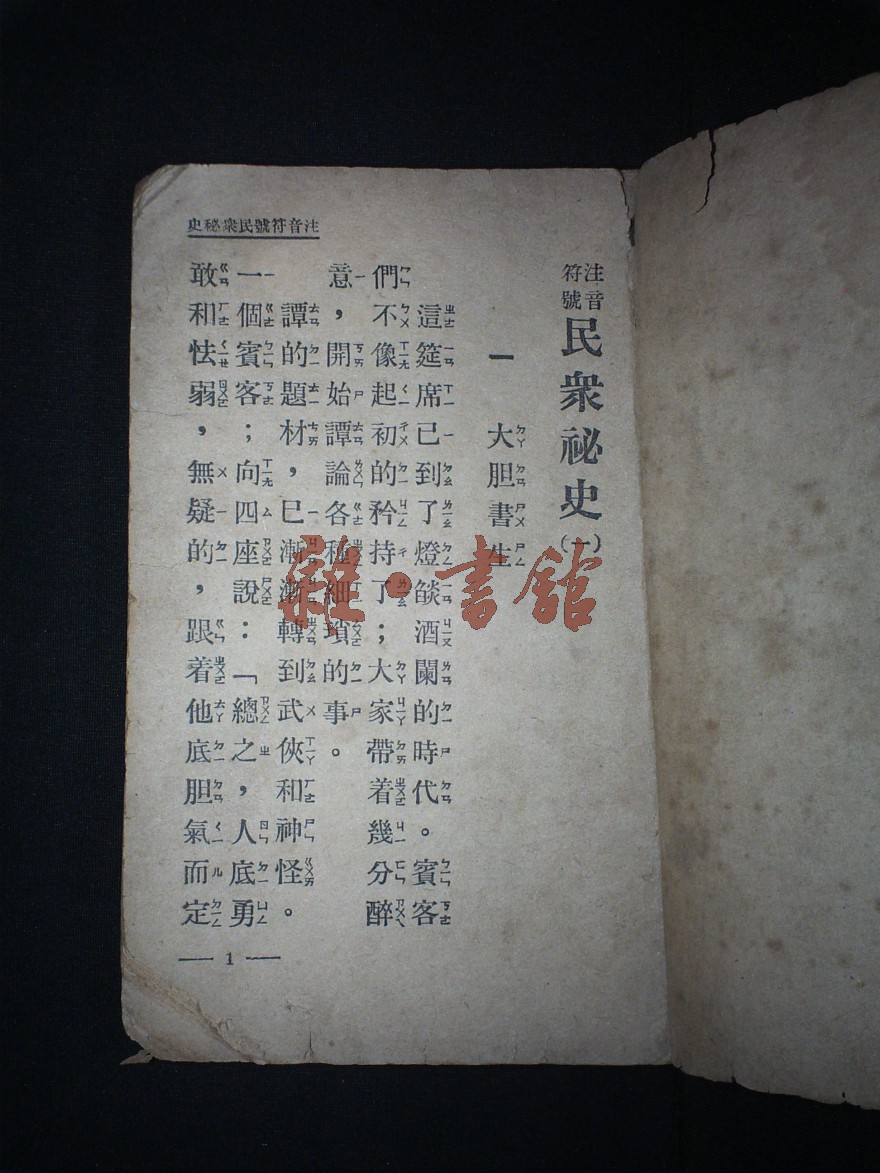 注音符號民衆祕史
注音符號 民衆祕史(一)
一 大胆書生
這筵席已到了燈燄酒闌的時代。賓客
們不像起初的矜持了;大家帶着幾分醉
意,開始譚論各種細瑣的事。
譚的題材,已漸漸轉到武俠和神怪。
一個賓客;向四座說:「總之,人底勇
敢和怯弱,無疑的,跟着他底胆氣而定
— 1 —
雜·書館